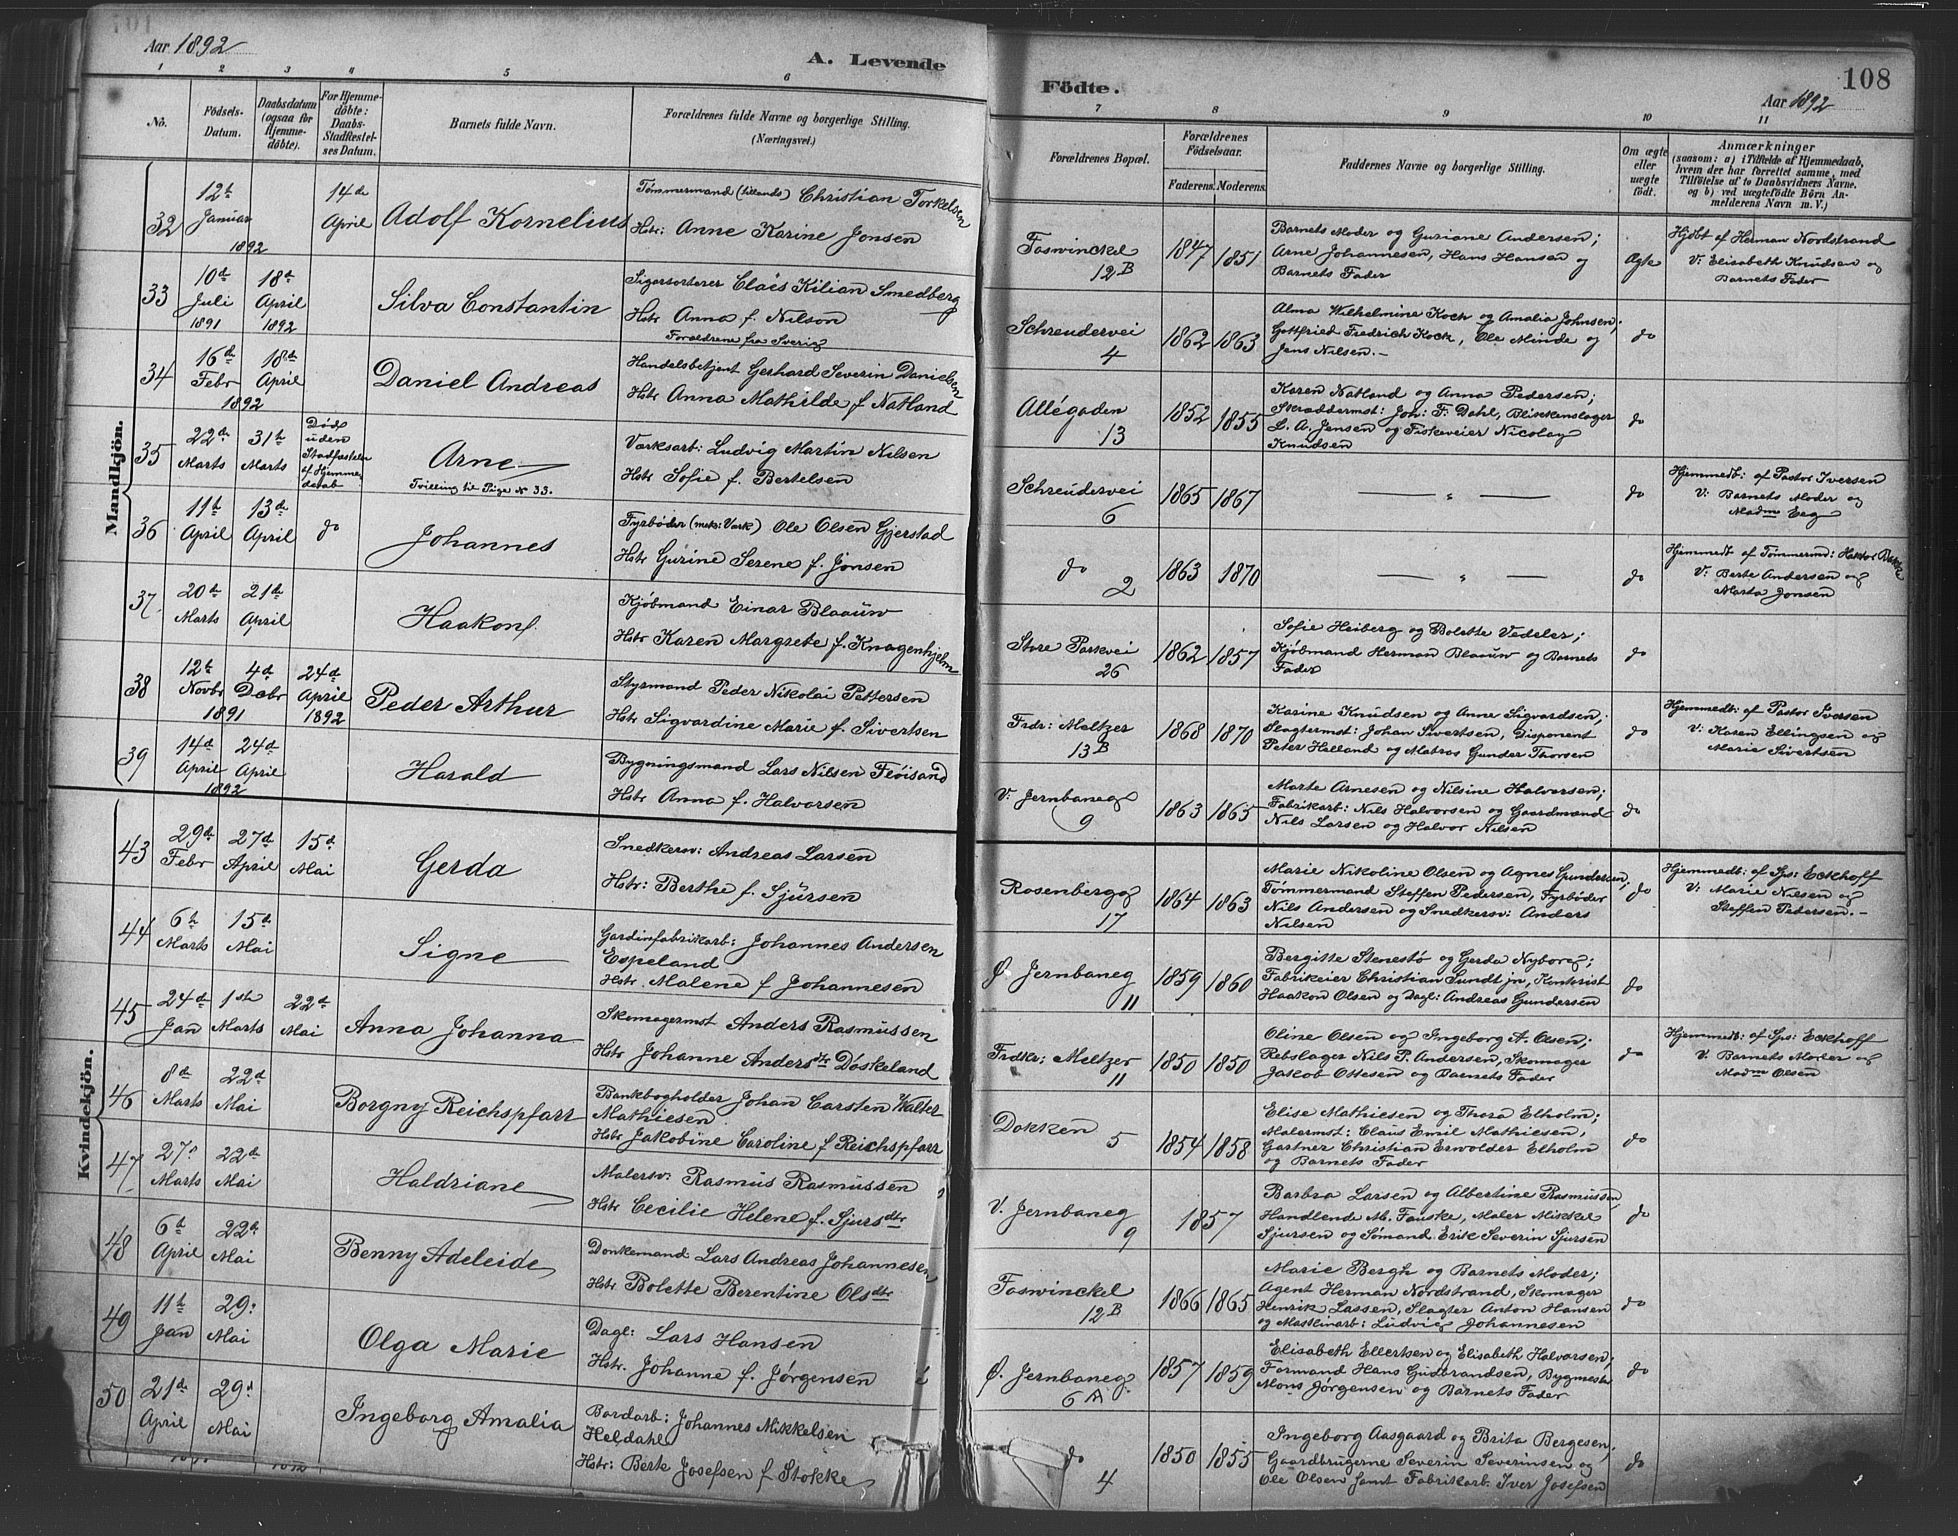 Aar 1892
A. Levende
1 2 3 4 5 6
No.
Födsels-
Datum.
Daabsdatum
(ogsaa for
Hjemme-
döbte).
For Hjemme-
döbte:
Daabs-
Stadfæstel-
ses Datum.
Barnets fulde Navn.
Forældrenes fulde Navne og borgerlige Stilling.
(Næringsvei.)
Mandkjön.
32 12te Januar 1892 14de April Adolf Kornelius
Tømmermand (tillands) Christian Torkelsen
Hstr: Anne Karine Jonsen
33 10de Juli 1891 18de April 1892 Silva Constantin
Sigarsorterer Claës Kilian Smedberg
Hstr Anna f. Nilson
Forældrene fra Sverig
34 16de Febr 18de April 1892 Daniel Andreas
Handelsbetjent Gerhard Severin Danielsen
Hstr Anna Mathilde f Natland
35 22de Marts 31te Marts
Død
uden
Stadfæstelse
af Hjemme-
daab
Arne
Tvilling til Pige N 33.
Værksarb: Ludvig Martin Nilsen
Hstr Sofie f. Bertelsen
36 11te April 13de April do Johannes
Fyrbøder (mek: Værk) Ole Olsen Gjerstad
Hstr Gurine Serene f. Jonsen
37 20de Marts 21de April Haakon
Kjøbmand Einar Blaauw
Hstr Karen Margrete f. Knagenhjelm
38 12te Novbr 4de Dcbr 1891 24de April 1892 Peder Arthur
Styrmand Peder Nikolai Pettersen
Hstr Sigvardine Marie f. Sivertsen
39 14de April 24de April 1892 Harald
Bygningsmand Lars Nilsen Fløisand
Hstr Anna f. Halvorsen
Kvindekjön.
43 29de Febr 27de April 15de Mai Gerda
Snedkersv: Andreas Larsen
Hstr: Berthe f. Sjursen
44 6te Marts 15de Mai Signe
Gardinfabrikarb: Johannes Andersen
Espeland
Hstr. Malene f Johannesen
45 24de Jan 1ste Marts 22de Mai Anna Johanna
Skomagermst Anders Rasmussen
Hstr Johanne Andersdtr Døskeland
46 8de Marts 22de Mai Borgny Reichspfarr
Bankbogholder Johan Carsten Walter
Mathiesen
Hstr Jakobine Caroline f Reichspfarr
47 27de Marts 22de Mai Haldriane
Malersv: Rasmus Rasmussen
Hstr Cecilie Helene f. Sjursdtr
48 6te April 22de Mai Benny Adeleide
Donkemand Lars Andreas Johannesen
Hstr Bolette Berentine Olsdtr
49 11te Jan 29: Mai Olga Marie
Dagl: Lars Hansen
Hstr. Johanne f. Jørgensen
50 21de April 29: Mai Ingeborg Amalia
Bordarb: Johannes Mikkelsen
Heldahl
Hstr: Berte Josefsen f Stokke
Födte.
108
Aar 1892
7 8 9 10 11
Forældrenes Bopæl.
Forældrenes
Födselsaar.
Faderens. Moderens.
Faddernes Navne og borgerlige Stilling.
Om ægte
eller
uægte
födt.
Anmærkninger
(saasom: a) i Tilfælde af Hjemmedaab,
hvem der har forrettet samme, med
Tilföielse af to Daabsvidners Navne.
og b) ved uægtefödte Börn An-
melderens Navn m. V.)
Foswinckel 12B 1847 1851
Barnets Moder og Guriane Andersen;
Arne Johannesen, Hans Hansen og
Barnets Fader
Ægte
Hjdbt af Herman Nordstrand
V: Elisabeth Knudsen og
Barnets Fader
Schreudervei 4 1862 1863
Alma Wilhelmine Koch og Amalia Johnsen;
Gottfried Fredrich Kock, Ole Minde og
Jens Nilsen.—
do
Allégaden 13 1852 1855
Karen Natland og Anna Pedersen;
Skræddermst: Joh: F. Dahl, Blikkenslager
L. A. Jensen og Fiskeveier Nicolay
Knudsen
do
Schreudervei 6 1865 1867 — " — do
Hjemmedt: af Pastor Iversen
V: Barnets Moder og
Madm Eeg
do 2 1863 1870 — " — do
Hjemmedt af Tømmermd:
V: Berte Andersen og
Marta Jonsen
Store Parkvei 26 1862 1857
Sofie Heiberg og Bolette Vedeler;
Kjøbmand Herman Blaauw og Barnets
Fader
do
Frdr: Meltzer 13B 1868 1870
Karine Knudsen og Anne Sigvardsen;
Slagtermst: Johan Sivertsen, Disponent
Peter Helland og Matros Gunder Thorsen
do
Hjemmedt: af Pastor Iversen
V: Karen Ellingsen og
Marie Sivertsen
V: Jernbaneg 9 1863 1865
Marte Arnesen og Nilsine Halvorsen;
Fabrikarb: Nils Halvorsen og Gaardmænd
Nils Larsen og Halvor Nilsen
do
Rosenbergg 17 1864 1863
Marie Nikoline Olsen og Agnes Gundersen;
Tømmermand Steffen Pedersen, Fyrbøder
Nils Andersen og Snedkersv: Anders
Nilsen
do
Hjemmedt: af Sps: Eckhoff
V: Marie Nilsen og
Steffen Pedersen.—
Ø. Jernbaneg 11 1859 1860
Bergitte Stenestø og Gerda Nyborg;
Fabrikeier Christian Sundt jn, Kontorist
Haakon Olsen og Dagl: Andreas Gundersen
do
Frdkr: Meltzer 11 1850 1850
Oline Olsen og Ingeborg A. Olsen;
Rebslager Nils P. Andersen, Skomager
Jakob Ottesen og Barnets Fader
do
Hjemmedt: af Sps: Eckhoff
V. Barnets Moder og
Madm Olsen
Dokken 5 1854 1858
Elise Mathiesen og Thora Elholm;
Malermst: Claus Emil Mathiesen,
Gartner Christian Ewolder Elholm
og Barnets Fader
do
V. Jernbaneg 9 1857
Barbra Larsen og Albertine Rasmussen,
Handlende M. Fauske, Maler Mikkel
Sjursen og Sømand Erik Severin Sjursen
do
Foswinckel 12B 1866 1865
Marie Bergh og Barnets Moder;
Agent Herman Nordstrand, Skomager
Henrik Lassen, Slagter Anton Hansen
og Masklinarb: Ludvig Johannesen
do
Ø. Jernbaneg 6A 1857 1859
Elisabeth Ellertsen og Elisabeth Halvorsen;
Formand Hans Gudbrandsen, Bygmester
Mons Jørgensen og Barnets Fader
do
do 4 1850 1855
Ingeborg Aasgaard og Brita Bergesen;
Gaardbrugerne Severin Severinsen og
Ole Olsen samt Fabrikarb. Iver Josefsen
do